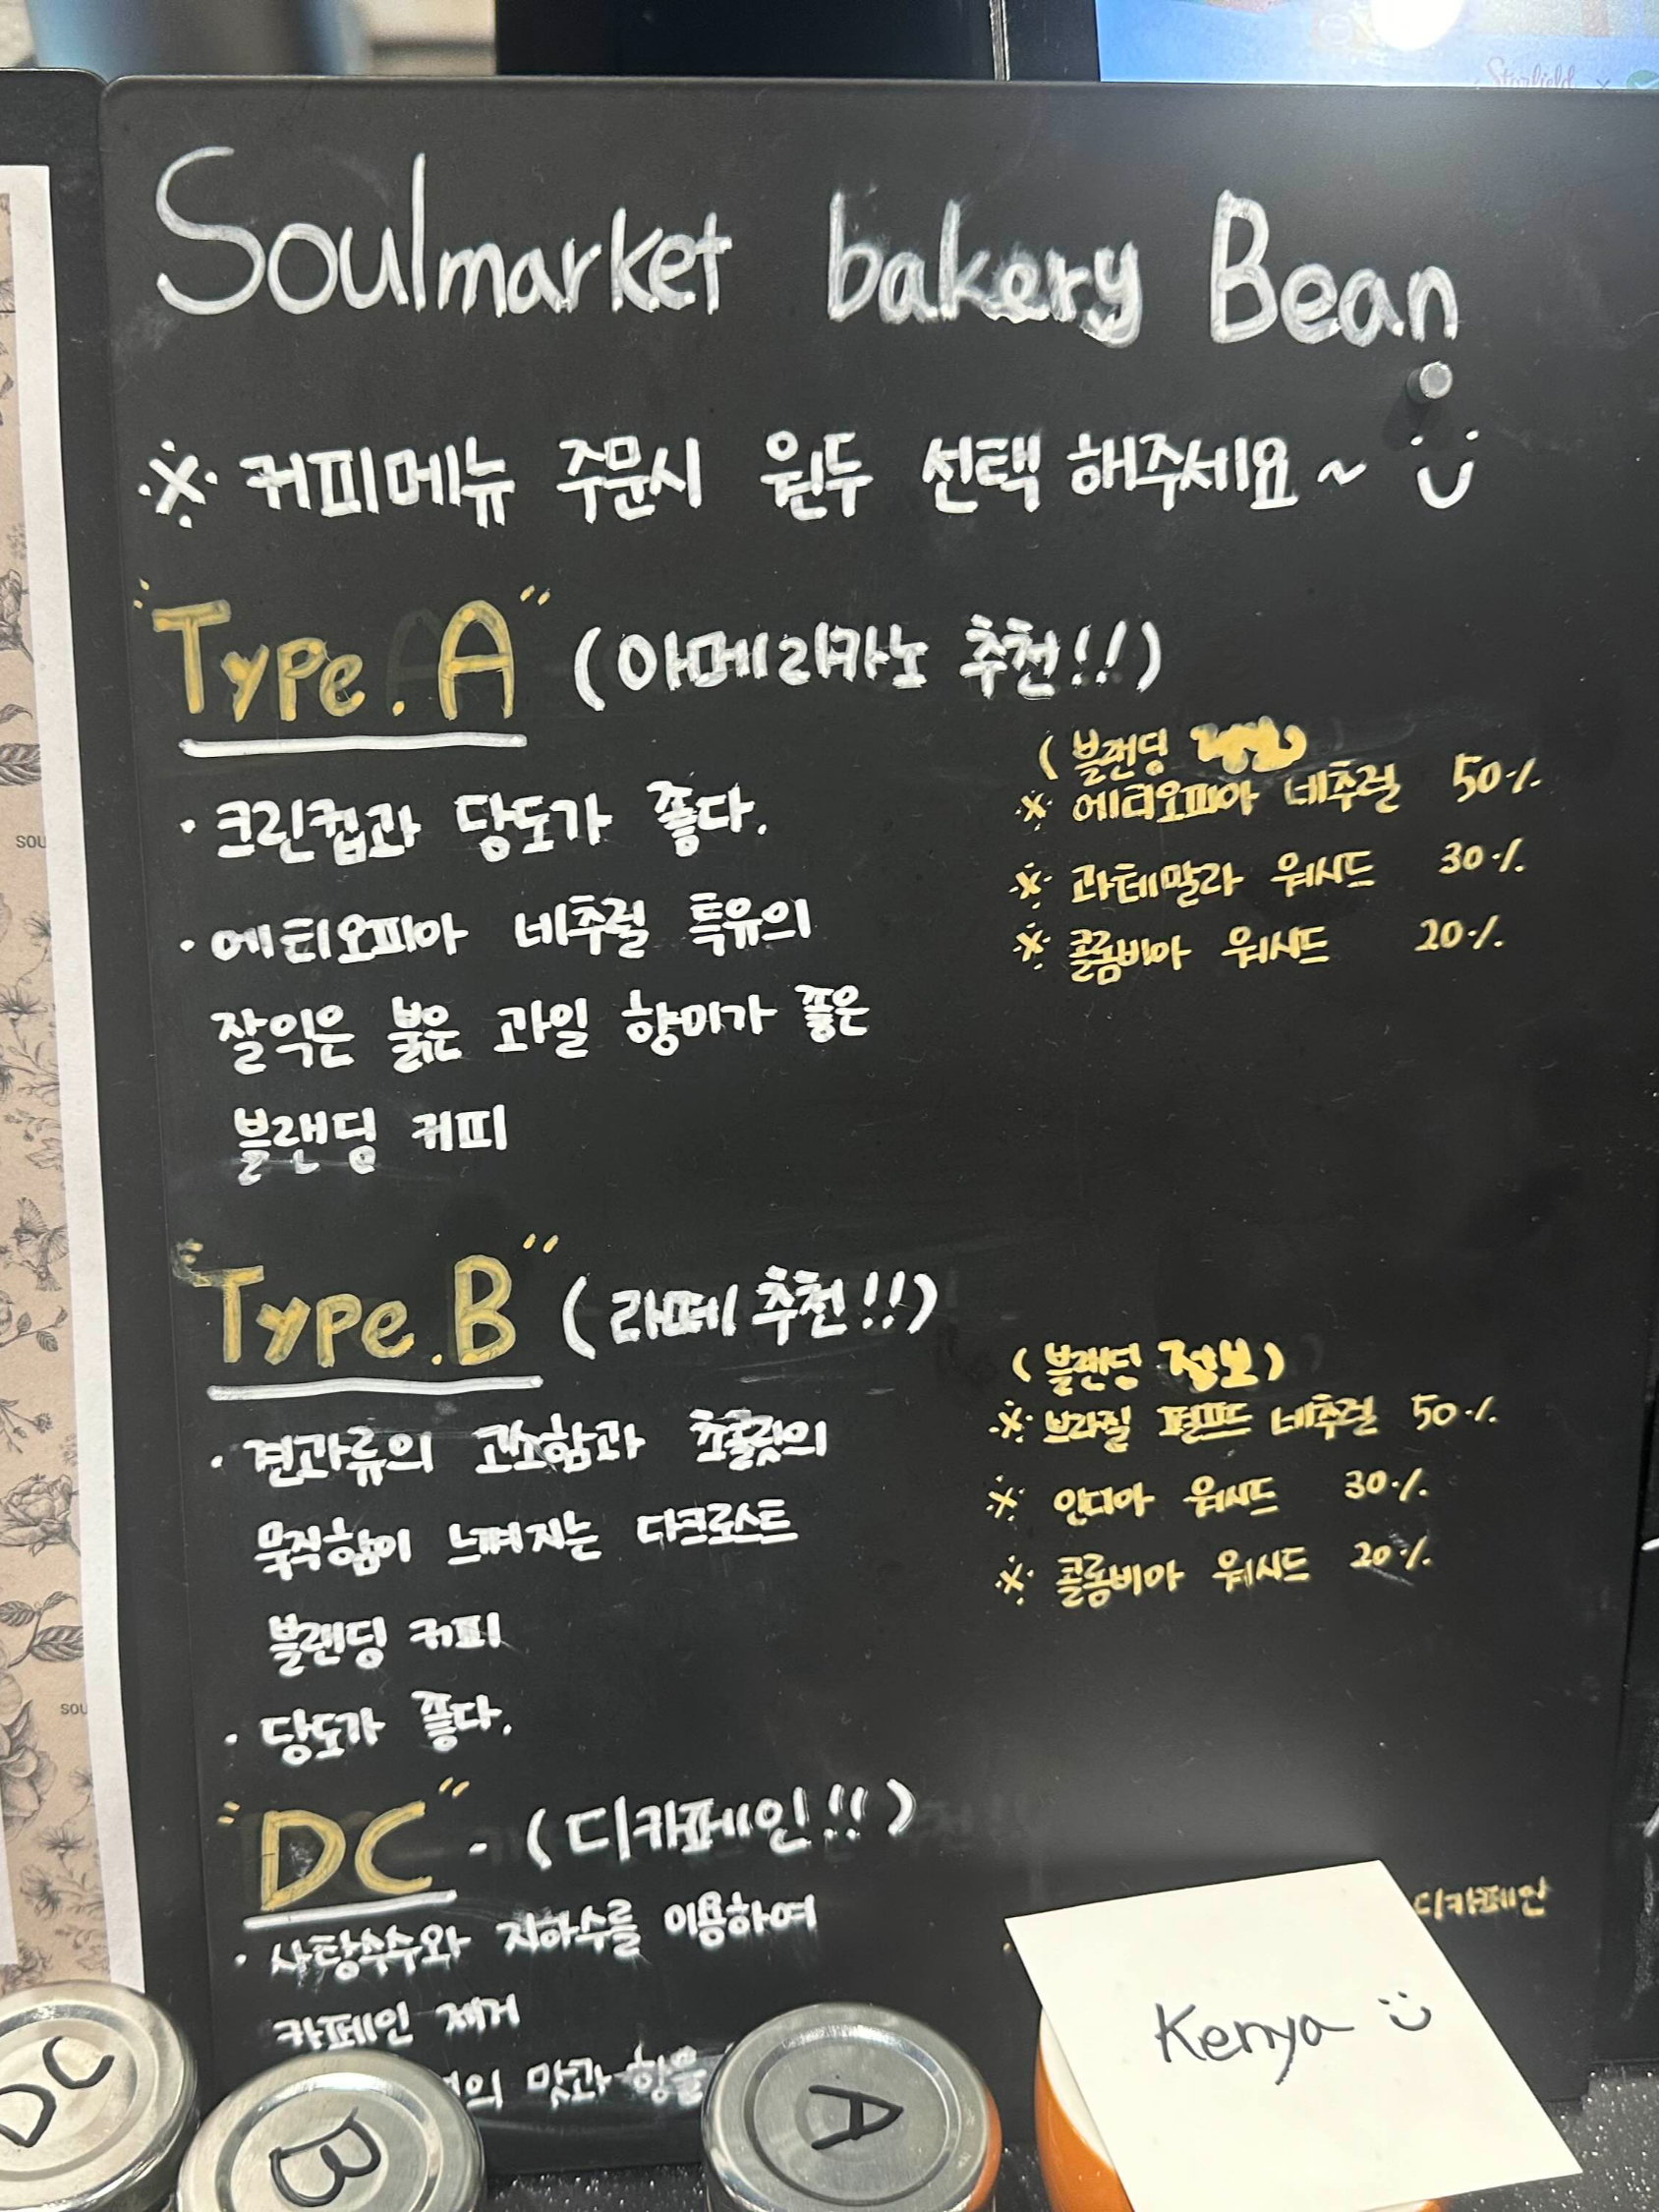 Starfield ×
Soulmarket bakery Bean
※ 커피메뉴 주문시 원두 선택 해주세요~
"Type.A" (아메리카노 추천!!)
· 크린컵과 당도가 좋다.
· 에티오피아 네추럴 특유의
잘익은 붉은 과일 향미가 좋은
블랜딩 커피
(블랜딩
※ 에티오피아 네추럴 50%
※ 과테말라 워시드 30%
※ 콜롬비아 워시드 20%
"Type.B" (라떼 추천!!)
· 견과류의 고소함과 초콜릿의
묵직함이 느껴지는 다크로스트
블랜딩 커피
· 당도가 좋다.
(블랜딩 정보)
※ 브라질 펄프드 네추럴 50%
※ 인디아 워시드 30%
※ 콜롬비아 워시드 20%
"DC" - (디카페인!!)
· 사탕수수와 지하수를 이용하여
카페인 제거
맛과 향을
디카페인
Kenya
DC
B
A
SOU
SOU